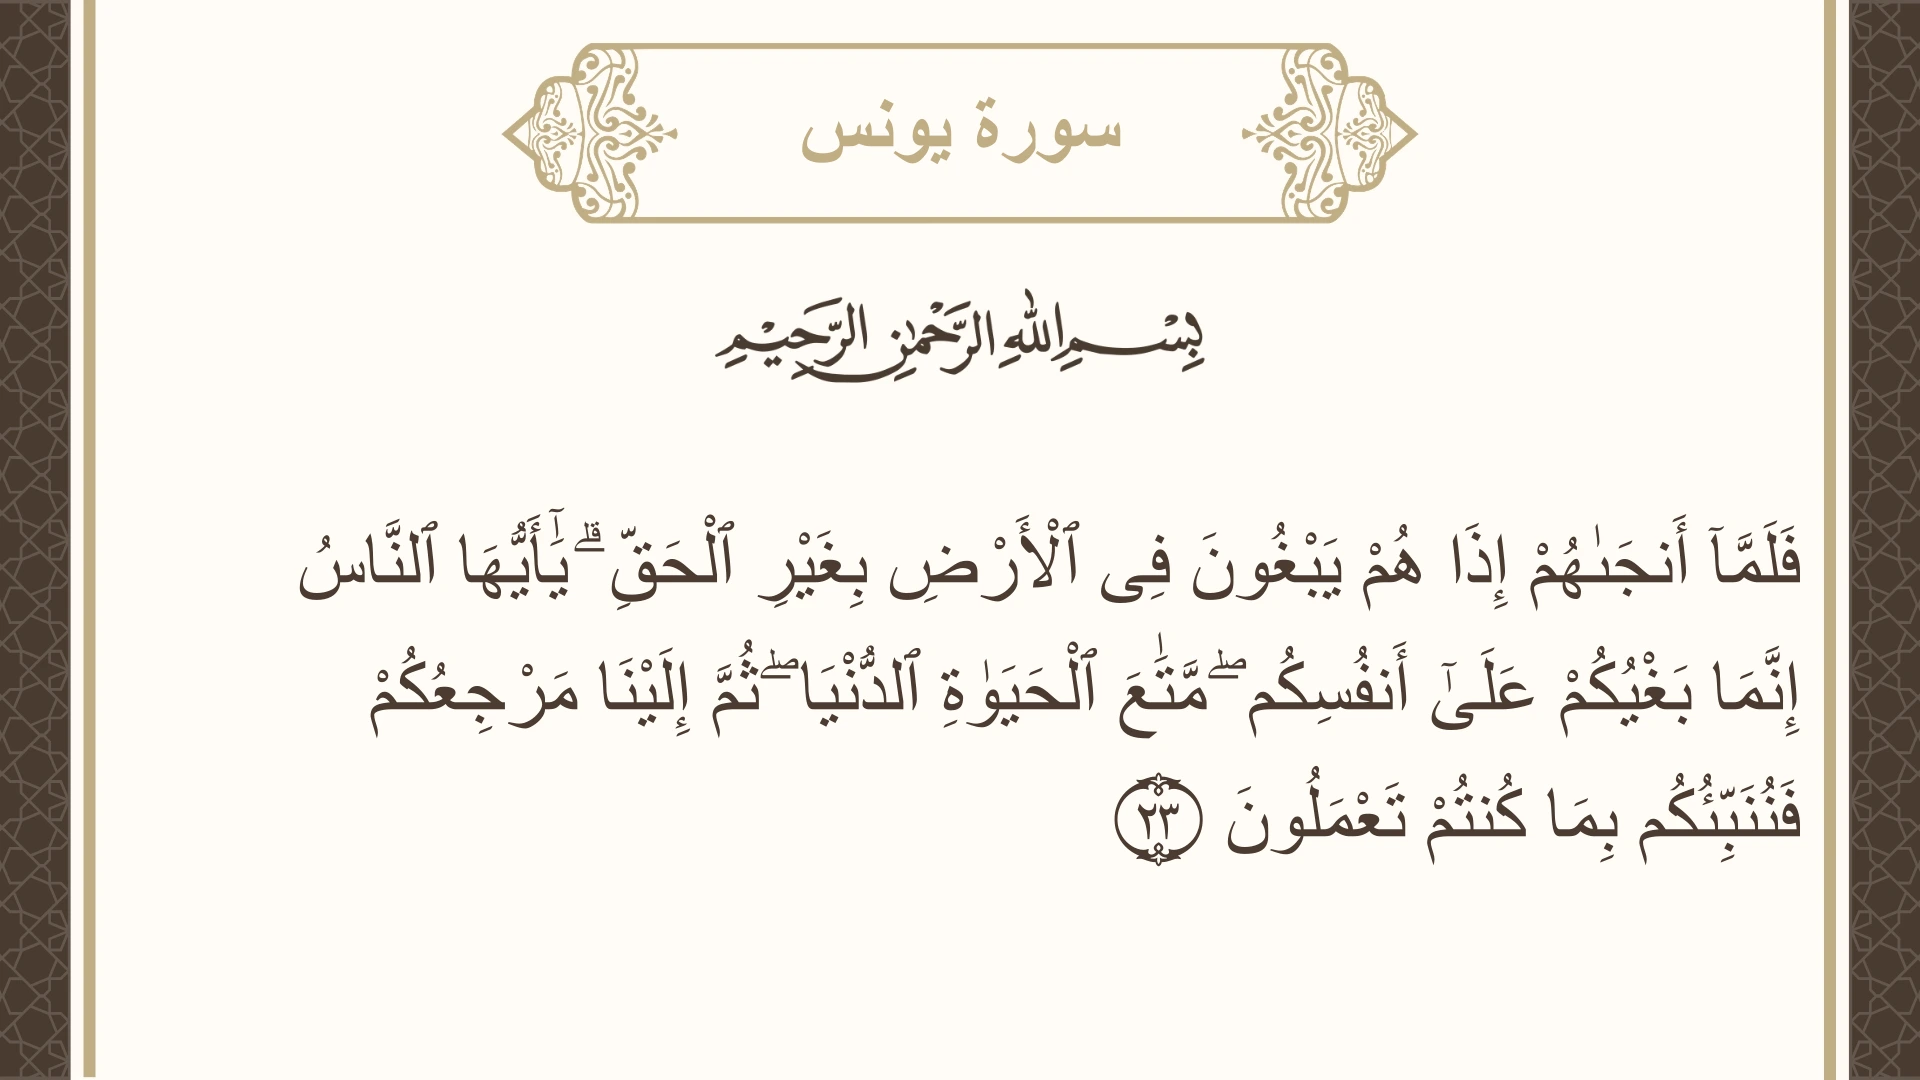 سورة يونس
بِسْمِ اللهِ الرَّحْمٰنِ الرَّحِيْمِ
فَلَمَّآ أَنجَىٰهُمْ إِذَا هُمْ يَبْغُونَ فِى ٱلْأَرْضِ بِغَيْرِ ٱلْحَقِّ ۗ يَٰٓأَيُّهَا ٱلنَّاسُ
إِنَّمَا بَغْيُكُمْ عَلَىٰٓ أَنفُسِكُم ۖ مَّتَٰعَ ٱلْحَيَوٰةِ ٱلدُّنْيَا ۖ ثُمَّ إِلَيْنَا مَرْجِعُكُمْ
فَنُنَبِّئُكُم بِمَا كُنتُمْ تَعْمَلُونَ ٢٣